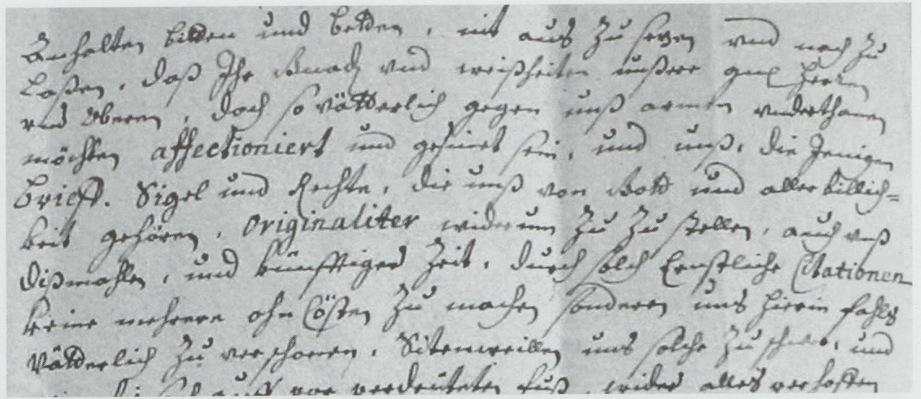 Anhalten bitten und betten, nit aus zu sezen und nach zu
Laßen, daß Ihr Gnad und weißheiten unßere gnd Herren
und Oberen, doch so vätterlich gegen unß armen underthanen
möchten affectioniert und gesinet sein, und unß, die Jenigen
brieff. Sigel und Rechte, die unß von Gott und aller billich=
keit gehören, Originaliter widerum zu zu stellen, auch unß
dißmahlen, und künfftiger Zeit, durch solch Ernstliche Citationen
keine mehrere ohn Cösten zu machen sonderen uns hierin fahls
Vätterlich zu verschonen, uns solche zu und
auff vor verdeuteten fuß, wider alles verhoffen